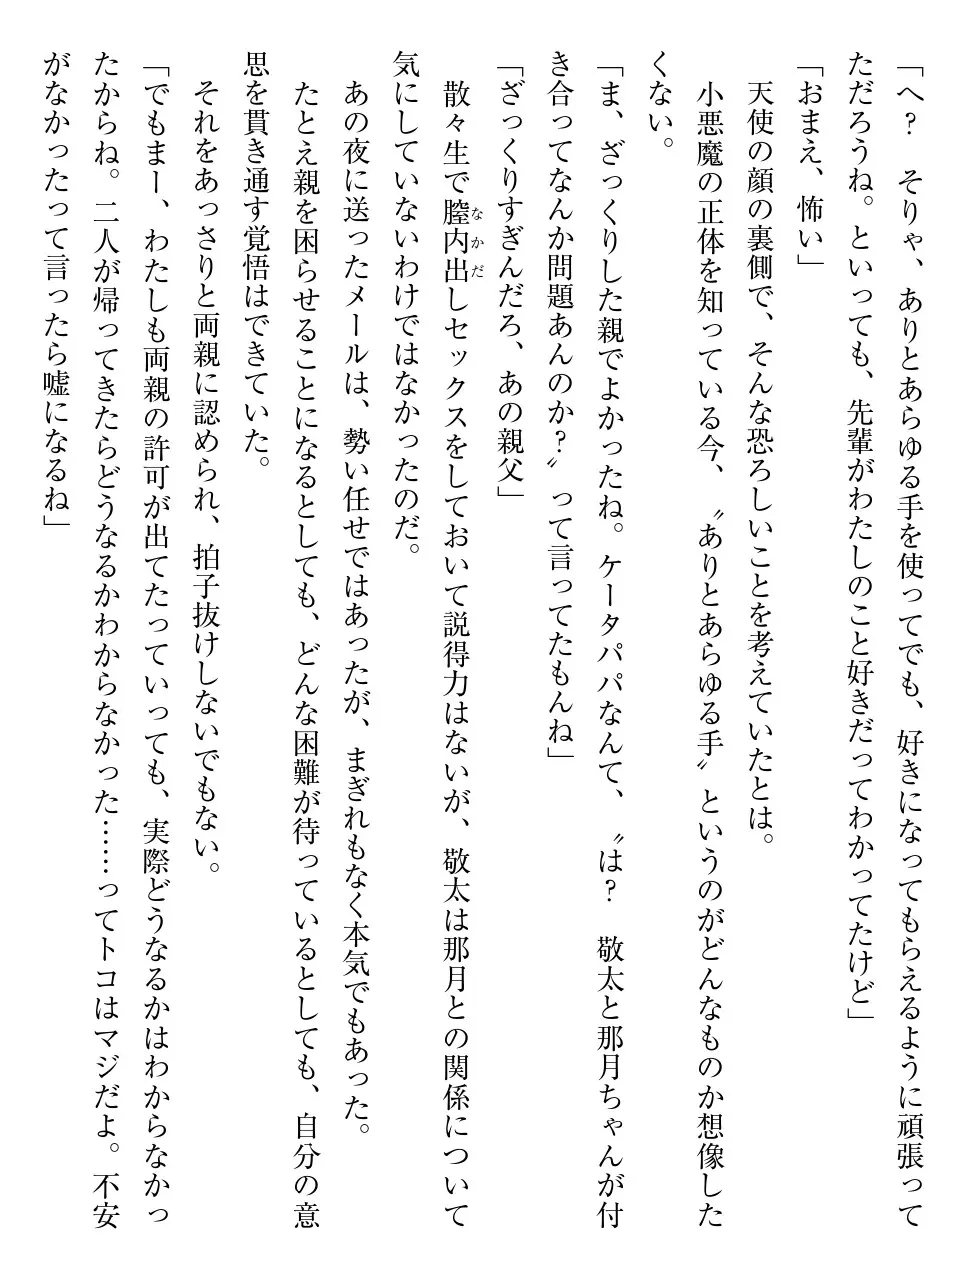 「へ？　そりゃ、ありとあらゆる手を使ってでも、好きになってもらえるように頑張って
ただろうね。といっても、先輩がわたしのこと好きだってわかってたけど」
「おまえ、怖い」
　天使の顔の裏側で、そんな恐ろしいことを考えていたとは。
　小悪魔の正体を知っている今、〝ありとあらゆる手〟というのがどんなものか想像した
くない。
「ま、ざっくりした親でよかったね。ケータパパなんて、〝は？　敬太と那月ちゃんが付
き合ってなんか問題あんのか？〟って言ってたもんね」
「ざっくりすぎんだろ、あの親父」
　散々生で膣内出しセックスをしておいて説得力はないが、敬太は那月との関係について
なかだ
気にしていないわけではなかったのだ。
　あの夜に送ったメールは、勢い任せではあったが、まぎれもなく本気でもあった。
　たとえ親を困らせることになるとしても、どんな困難が待っているとしても、自分の意
思を貫き通す覚悟はできていた。
　それをあっさりと両親に認められ、拍子抜けしないでもない。
「でもまー、わたしも両親の許可が出てたっていっても、実際どうなるかはわからなかっ
たからね。二人が帰ってきたらどうなるかわからなかった……ってトコはマジだよ。不安
がなかったって言ったら嘘になるね」